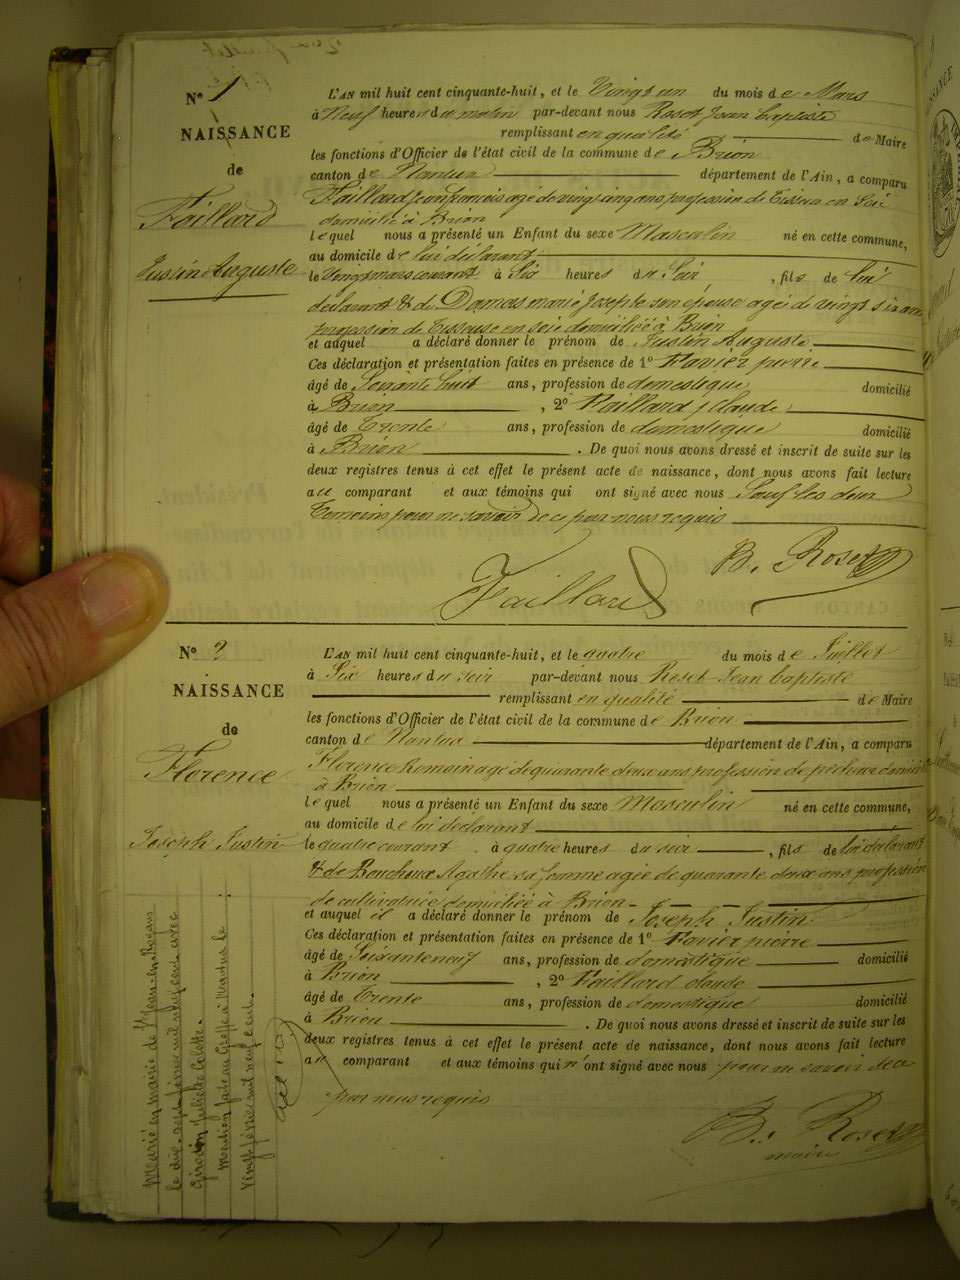 Nº 1
NAISSANCE
de
Faillard
Justin Auguste
L'AN mil huit cent cinquante-huit, et le Vingt un du mois de Mars
à Neuf heures du matin par-devant nous Roset Jean baptiste
remplissant en qualité de Maire
les fonctions d'Officier de l'état civil de la commune de Brion
canton de Nantua département de l'Ain, a comparu
Faillard jean francois agé de vingt cinq ans profession de Tisseur en Soie
domicilié à Brion
lequel nous a présenté un Enfant du sexe Masculin né en cette commune,
au domicile de lui déclarant
le Vingt mars courant à Six heures du Soir, fils de lui
déclarant & de marie Josephte son épouse agée de vingt six ans
profession de Tisseuse en soie domiciliée à Brion
et auquel a déclaré donner le prénom de Justin Auguste
Ces déclaration et présentation faites en présence de 1º Favier pierre
âgé de Soixante huit ans, profession de domestique domicilié
à Brion, 2º Faillard Claude
âgé de Trente ans, profession de domestique domicilié
à Brion. De quoi nous avons dressé et inscrit de suite sur les
deux registres tenus à cet effet le présent acte de naissance, dont nous avons fait lecture
au comparant et aux témoins qui ont signé avec nous Sauf les deux
Temoins pour ne savoir de ce par nous requis
Faillard B. Roset
Nº 2
NAISSANCE
de
Florence
Joseph Justin
L'AN mil huit cent cinquante-huit, et le quatre du mois de Juillet
à Six heures du soir par-devant nous Roset Jean baptiste
remplissant en qualité de Maire
les fonctions d'Officier de l'état civil de la commune de Brion
canton de Nantua département de l'Ain, a comparu
Florence Romain agé de quarante deux ans profession de pêcheur domicilié
à Brion
lequel nous a présenté un Enfant du sexe Masculin né en cette commune,
au domicile de lui déclarant
le quatre courant à quatre heures du soir, fils de lui déclarant
& de Bouchoux Agathe sa femme agée de quarante deux ans profession
de cultivatrice domiciliée à Brion
et auquel il a déclaré donner le prénom de Joseph Justin
Ces déclaration et présentation faites en présence de 1º Favier pierre
âgé de Soixante neuf ans, profession de domestique domicilié
à Brion, 2º Faillard claude
âgé de Trente ans, profession de domestique domicilié
à Brion. De quoi nous avons dressé et inscrit de suite sur les
deux registres tenus à cet effet le présent acte de naissance, dont nous avons fait lecture
au comparant et aux témoins qui n'ont signé avec nous pour ne savoir de ce
par nous requis
B. Roset
maire
Marié en mairie de
le dix-sept février mil neuf cent avec
Girodon Juliette
mention faite au Greffe à Nantua le
vingt février mil neuf cent.